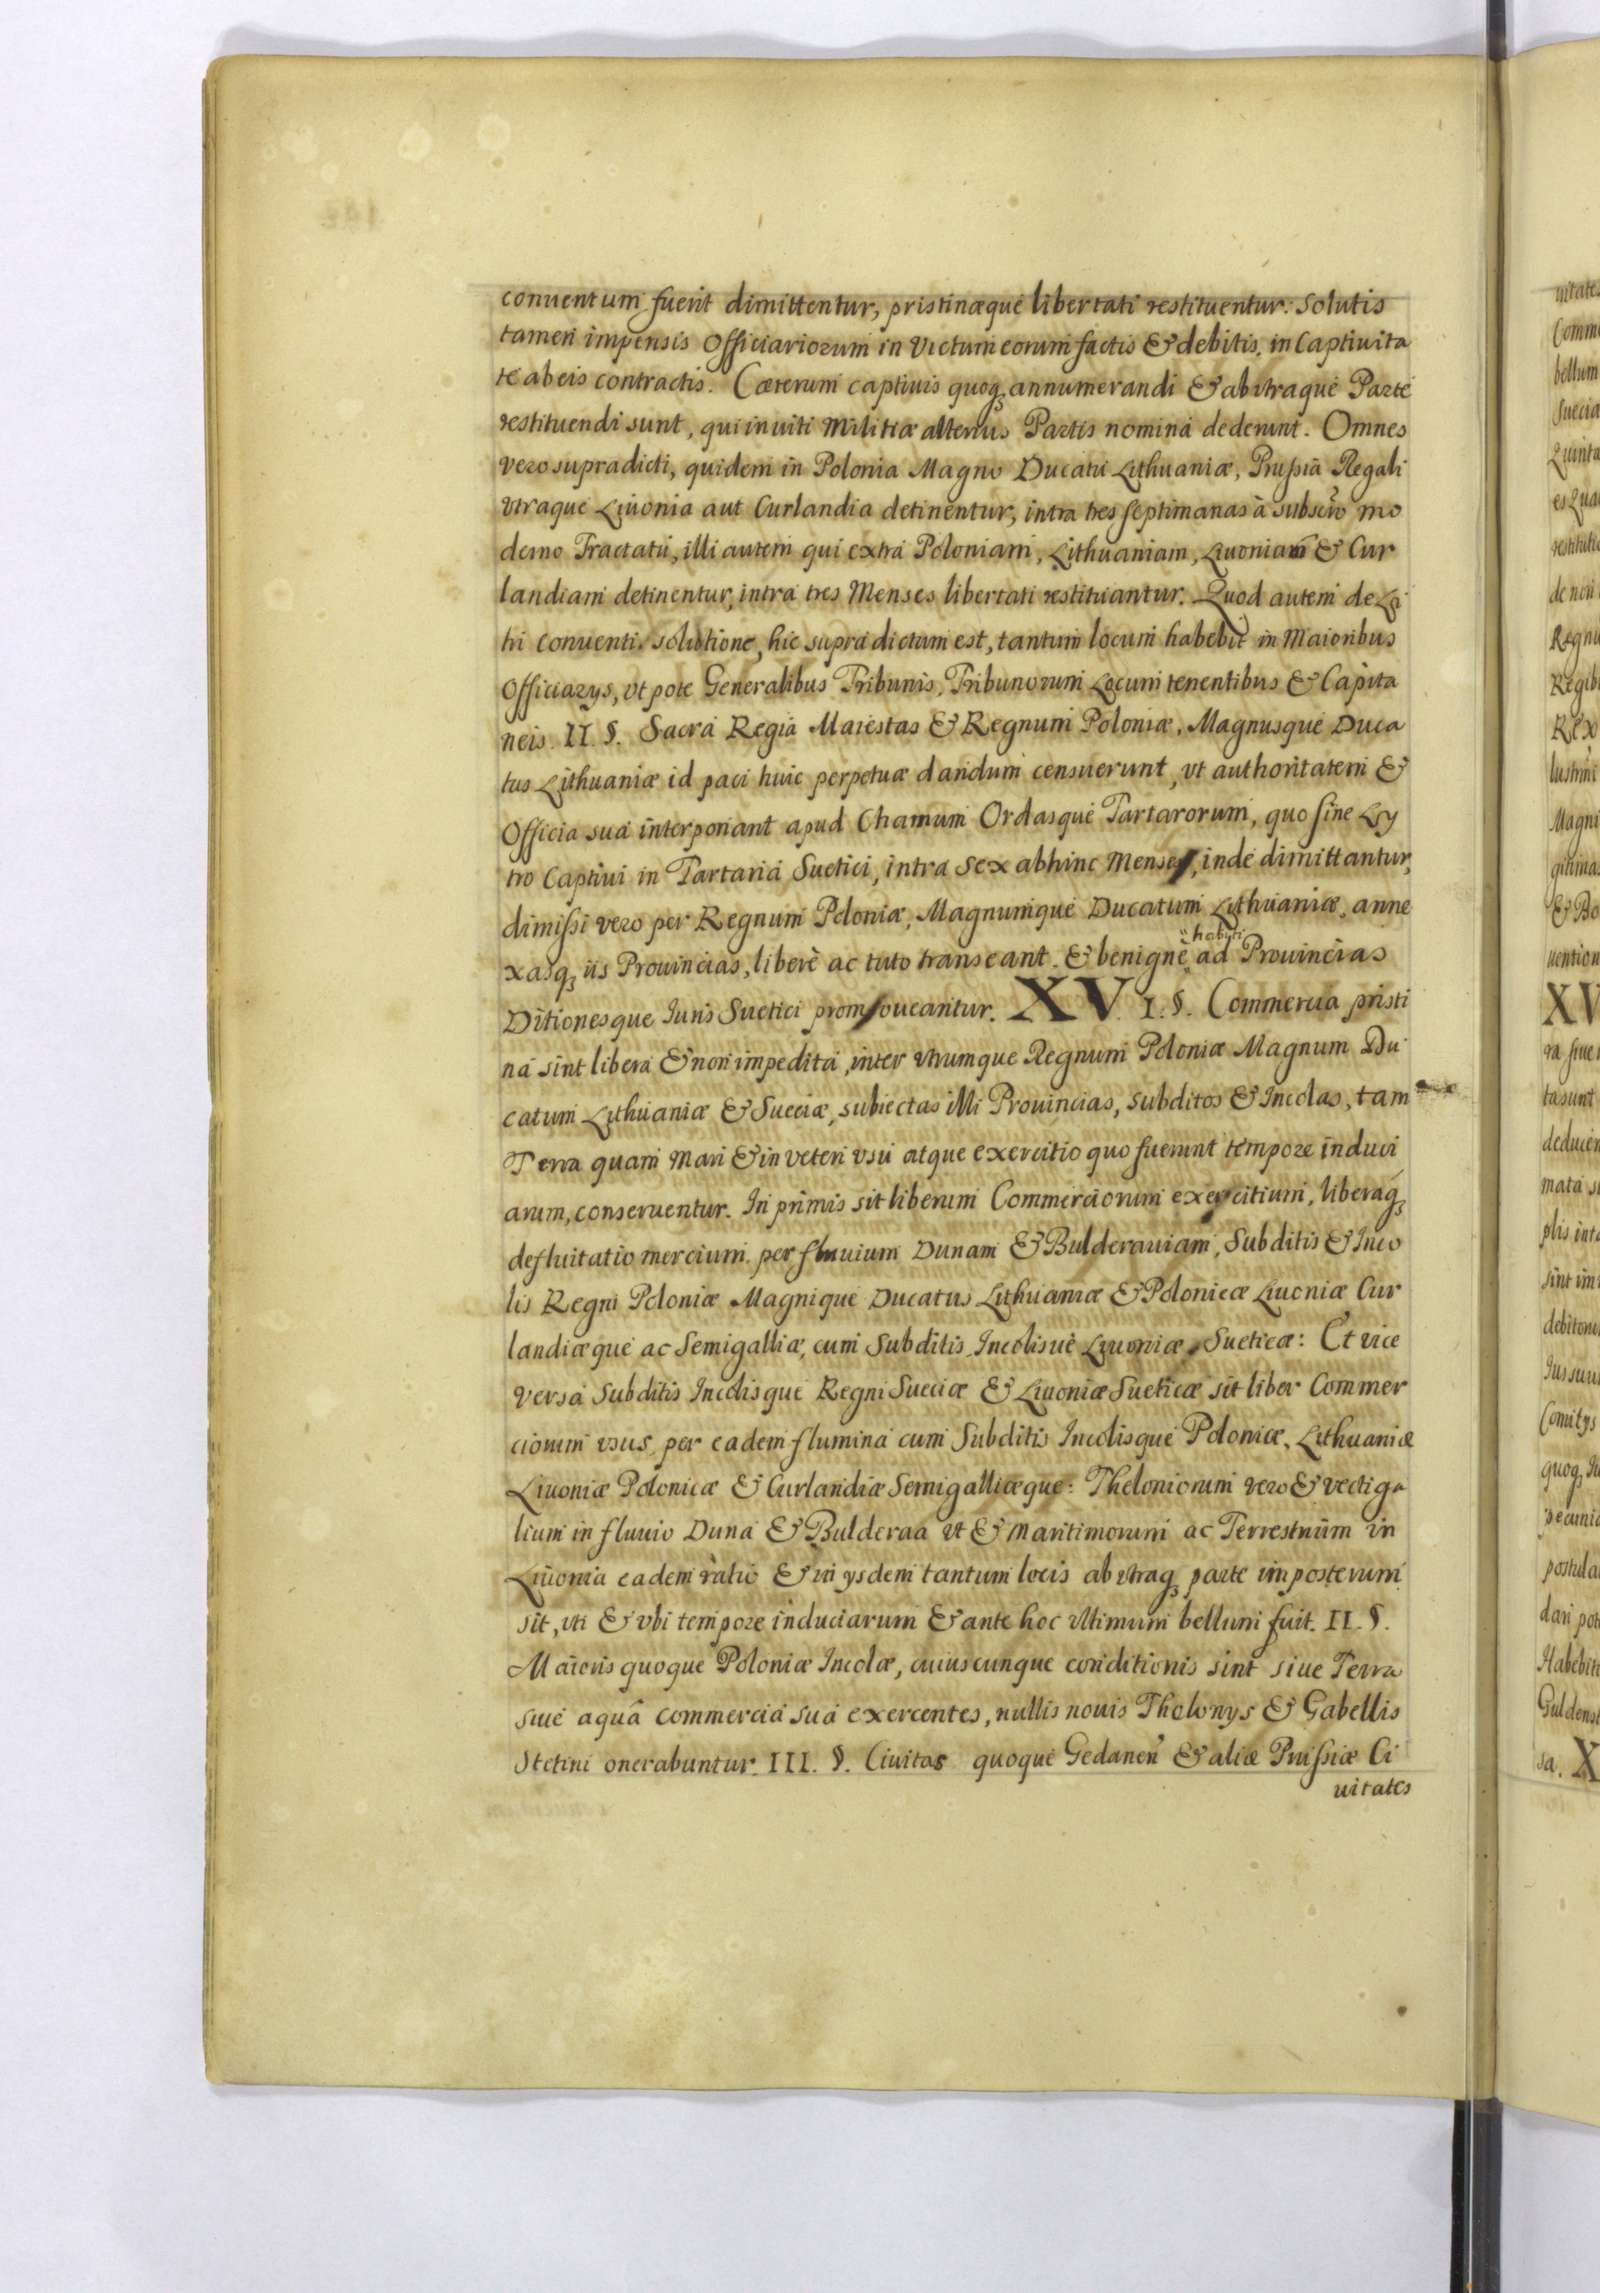 conuentum fuerit dimittentur, pristinæque libertati restituentur: solutis
tamen impensis Officiariorum in victum eorum factis & debitis, in Captiuita
te ab eis contractis. Cæterum captiuis quoq annumerandi & ab vtraque Parte
restituendi sunt, qui inuiti Militiæ alterius Partis nomina dederunt. Omnes
vero supradicti, quidem in Polonia Magno Ducatu Lithuaniæ, Prussia Regali
vtraque Liuonia aut Curlandia detinentur, intra tres septimanas à mo
derno Tractatu, illi autem qui extra Poloniam, Lithuaniam, Liuoniam & Cur
landiam detinentur, intra tres Menses libertati restituantur. Quod autem de Ly
tri conuenti solutione, hic supra dictum est, tantum locum habebit in Maioribus
Officiarys, vt pote Generalibus Tribunis, Tribunorum Locum tenentibus & Capita
neis. II. §. Sacra Regia Maiestas & Regnum Poloniæ, Magnusque Duca
tus Lithuaniæ id paci huic perpetuæ dandum censuerunt, vt authoritatem &
Officia sua interponant apud Chamum Ordasque Tartarorum, quo sine Ly
tro Captiui in Tartaria Suetici, intra sex abhinc Menses, inde dimittantur,
dimissi vero per Regnum Poloniæ, Magnumque Ducatum Lithuaniæ, anne
xasq iis Prouincias, liberè ac tuto transeant. & benignè habiti ad Prouincias
Ditionesque Iuris Suetici promoueantur. XV. I. §. Commercia pristi
na sint libera & non impedita, inter vtrumque Regnum Poloniæ Magnum Du
catum Lithuaniæ & Sueciæ, subiectas illi Prouincias, subditos & Incolas, tam
Terra quam Mari & in veteri vsu atque exercitio quo fuerunt tempore induci
arum, conseruentur. In primis sit liberum Commerciorum exercitium, liberaq
defluitatio mercium per fluuium Dunam & Bulderauiam, Subditis & Inco
lis Regni Poloniæ Magnique Ducatus Lithuaniæ & Polonicæ Liuoniæ Cur
landiæque ac Semigalliæ, cum Subditis Incolisue Liuoniæ Sueticæ: Et vice
versa Subditis Incolisque Regni Sueciæ & Liuoniæ Sueticæ sit liber Commer
ciorum vsus, per eadem flumina cum Subditis Incolisque Poloniæ, Lithuaniæ
Liuoniæ Polonicæ & Curlandiæ Semigalliæque: Theloniorum vero & vectiga
lium in fluuio Duna & Bulderaa vt & Maritimorum ac Terrestrium in
Liuonia eadem ratio & in ysdem tantum locis ab vtraq parte imposterum
sit, vti & vbi tempore induciarum & ante hoc vltimum bellum fuit. II. §.
Maioris quoque Poloniæ Incolæ, cuiuscunque conditionis sint siue Terra
siue aquâ commercia sua exercentes, nullis nouis Thelonys & Gabellis
Stetini onerabuntur. III. §. Ciuitas quoque Gedanen & aliæ Prussiæ Ci
uitates